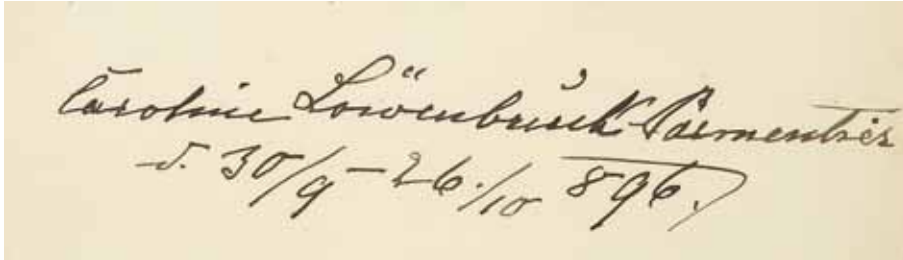 Caroline Löwenbrück-Parmentier
d. 30/9 – 26./10 896.